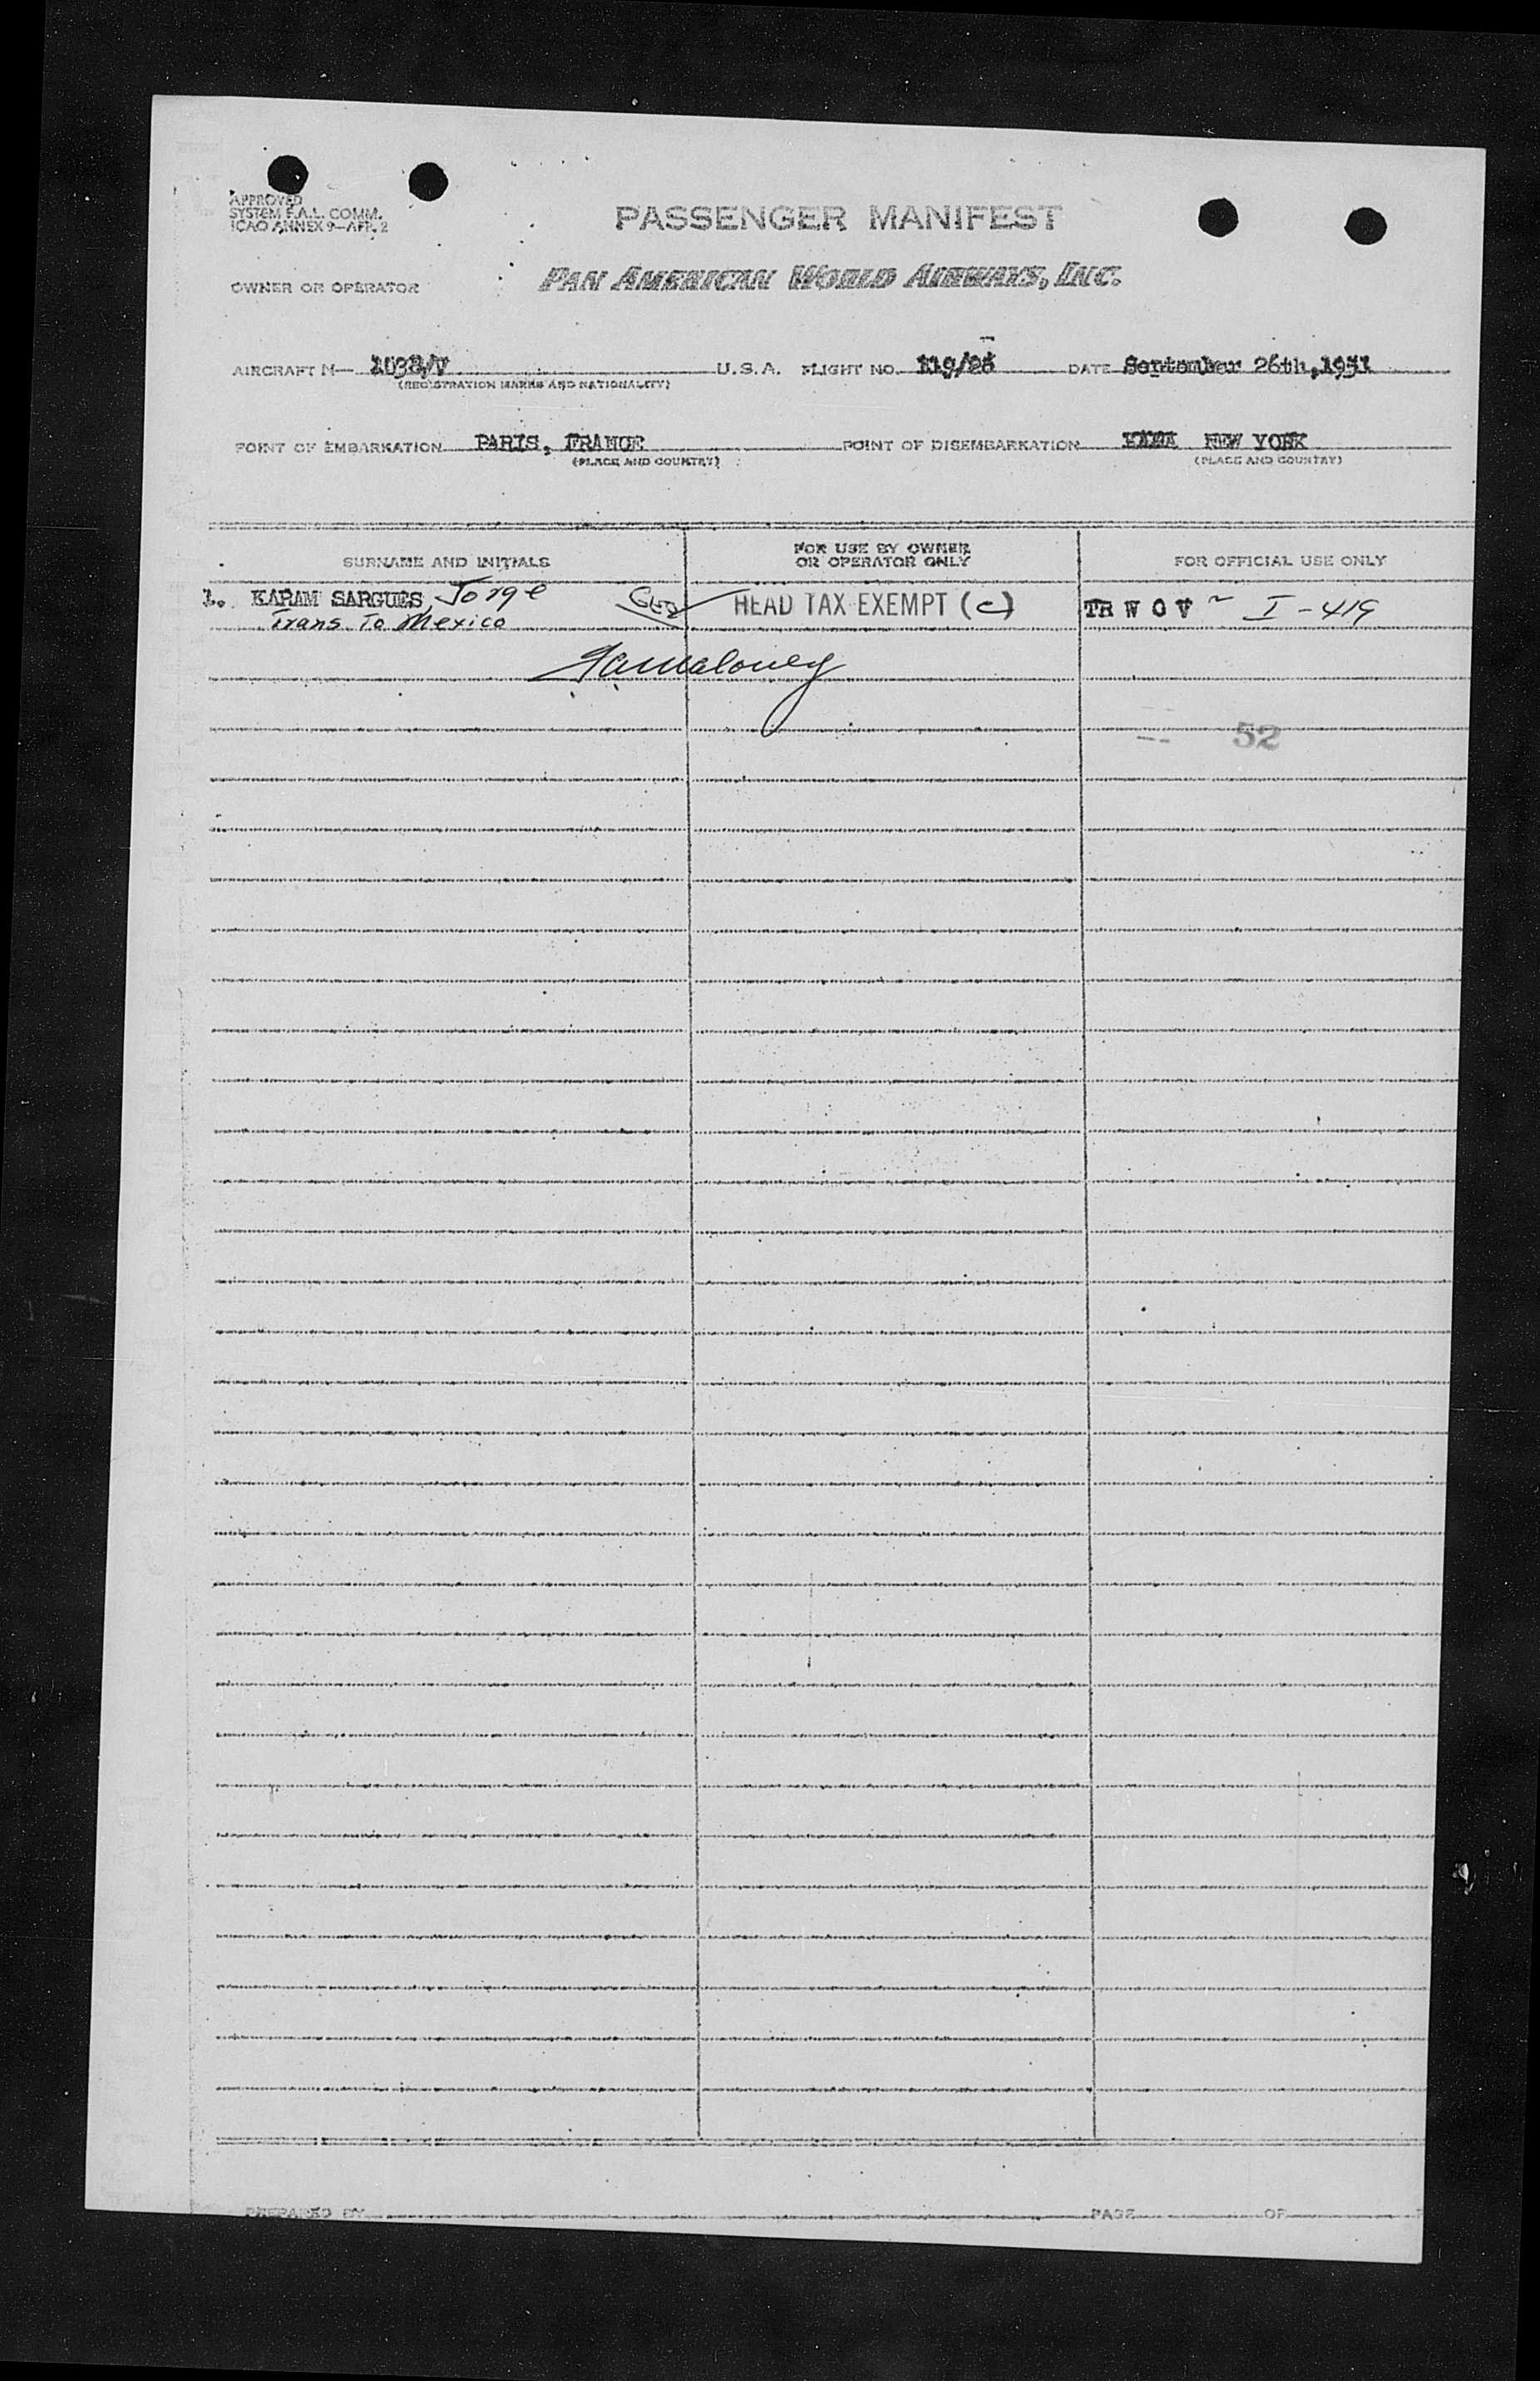 APPROVED
SYSTEM F.A.L. COMM.
ICAO ANNEX 9—APP. 2
PASSENGER MANIFEST
OWNER OR OPERATOR PAN AMERICAN WORLD AIRWAYS, INC.
AIRCRAFT N— U.S.A. FLIGHT NO. DATE September 26th, 1951
(REGISTRATION MARKS AND NATIONALITY)
POINT OF EMBARKATION PARIS, FRANCE POINT OF DISEMBARKATION NEW YORK
(PLACE AND COUNTRY) (PLACE AND COUNTRY)
SURNAME AND INITIALS FOR USE BY OWNER OR OPERATOR ONLY FOR OFFICIAL USE ONLY
1. KARAM SARGUES, Jorge HEAD TAX EXEMPT (c) TR W O V I-419
Trans To Mexico
52
PREPARED BY PAGE OF